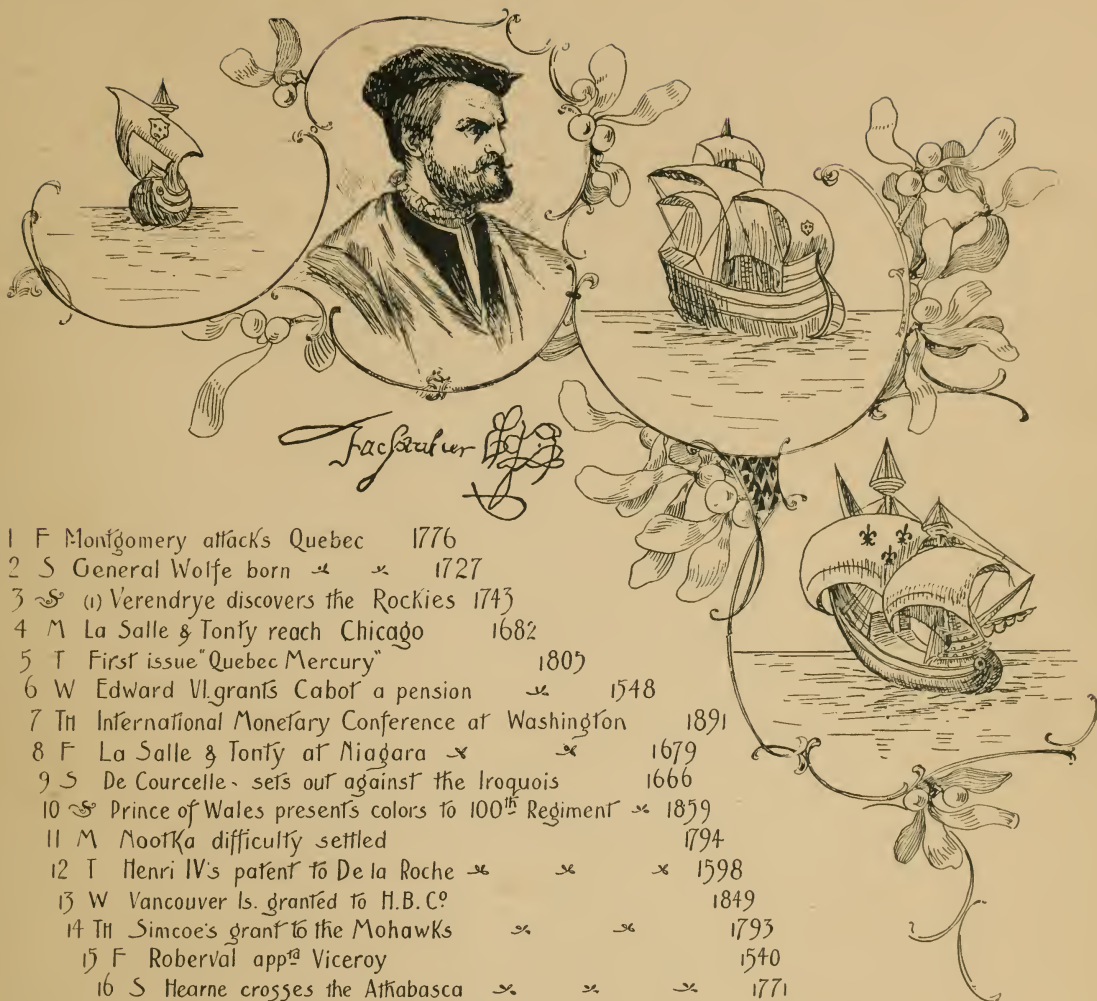 Jac Cartier
1 F Montgomery attacks Quebec 1776
2 S General Wolfe born 1727
3 S (1) Verendrye discovers the Rockies 1743
4 M La Salle & Tonty reach Chicago 1682
5 T First issue "Quebec Mercury" 1805
6 W Edward VI. grants Cabot a pension 1548
7 TH International Monetary Conference at Washington 1891
8 F La Salle & Tonty at Niagara 1679
9 S De Courcelle - sets out against the Iroquois 1666
10 S Prince of Wales presents colors to 100th Regiment 1859
11 M Nootka difficulty settled 1794
12 T Henri IV's patent to De la Roche 1598
13 W Vancouver Is. granted to H.B. Co 1849
14 TH Simcoe's grant to the Mohawks 1793
15 F Roberval apptd Viceroy 1540
16 S Hearne crosses the Athabasca 1771